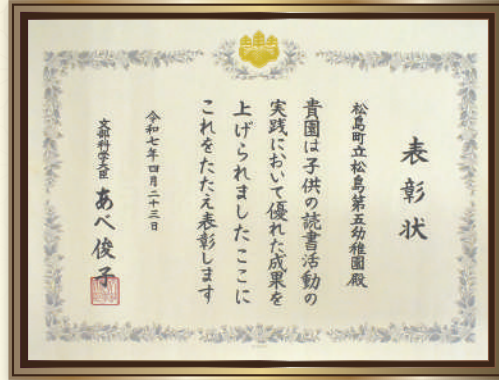 表彰状
松島町立松島第五幼稚園殿
貴園は子供の読書活動の
実践において優れた成果を
上げられましたここに
これをたたえ表彰します
令和七年四月二十三日
文部科学大臣 あべ俊子